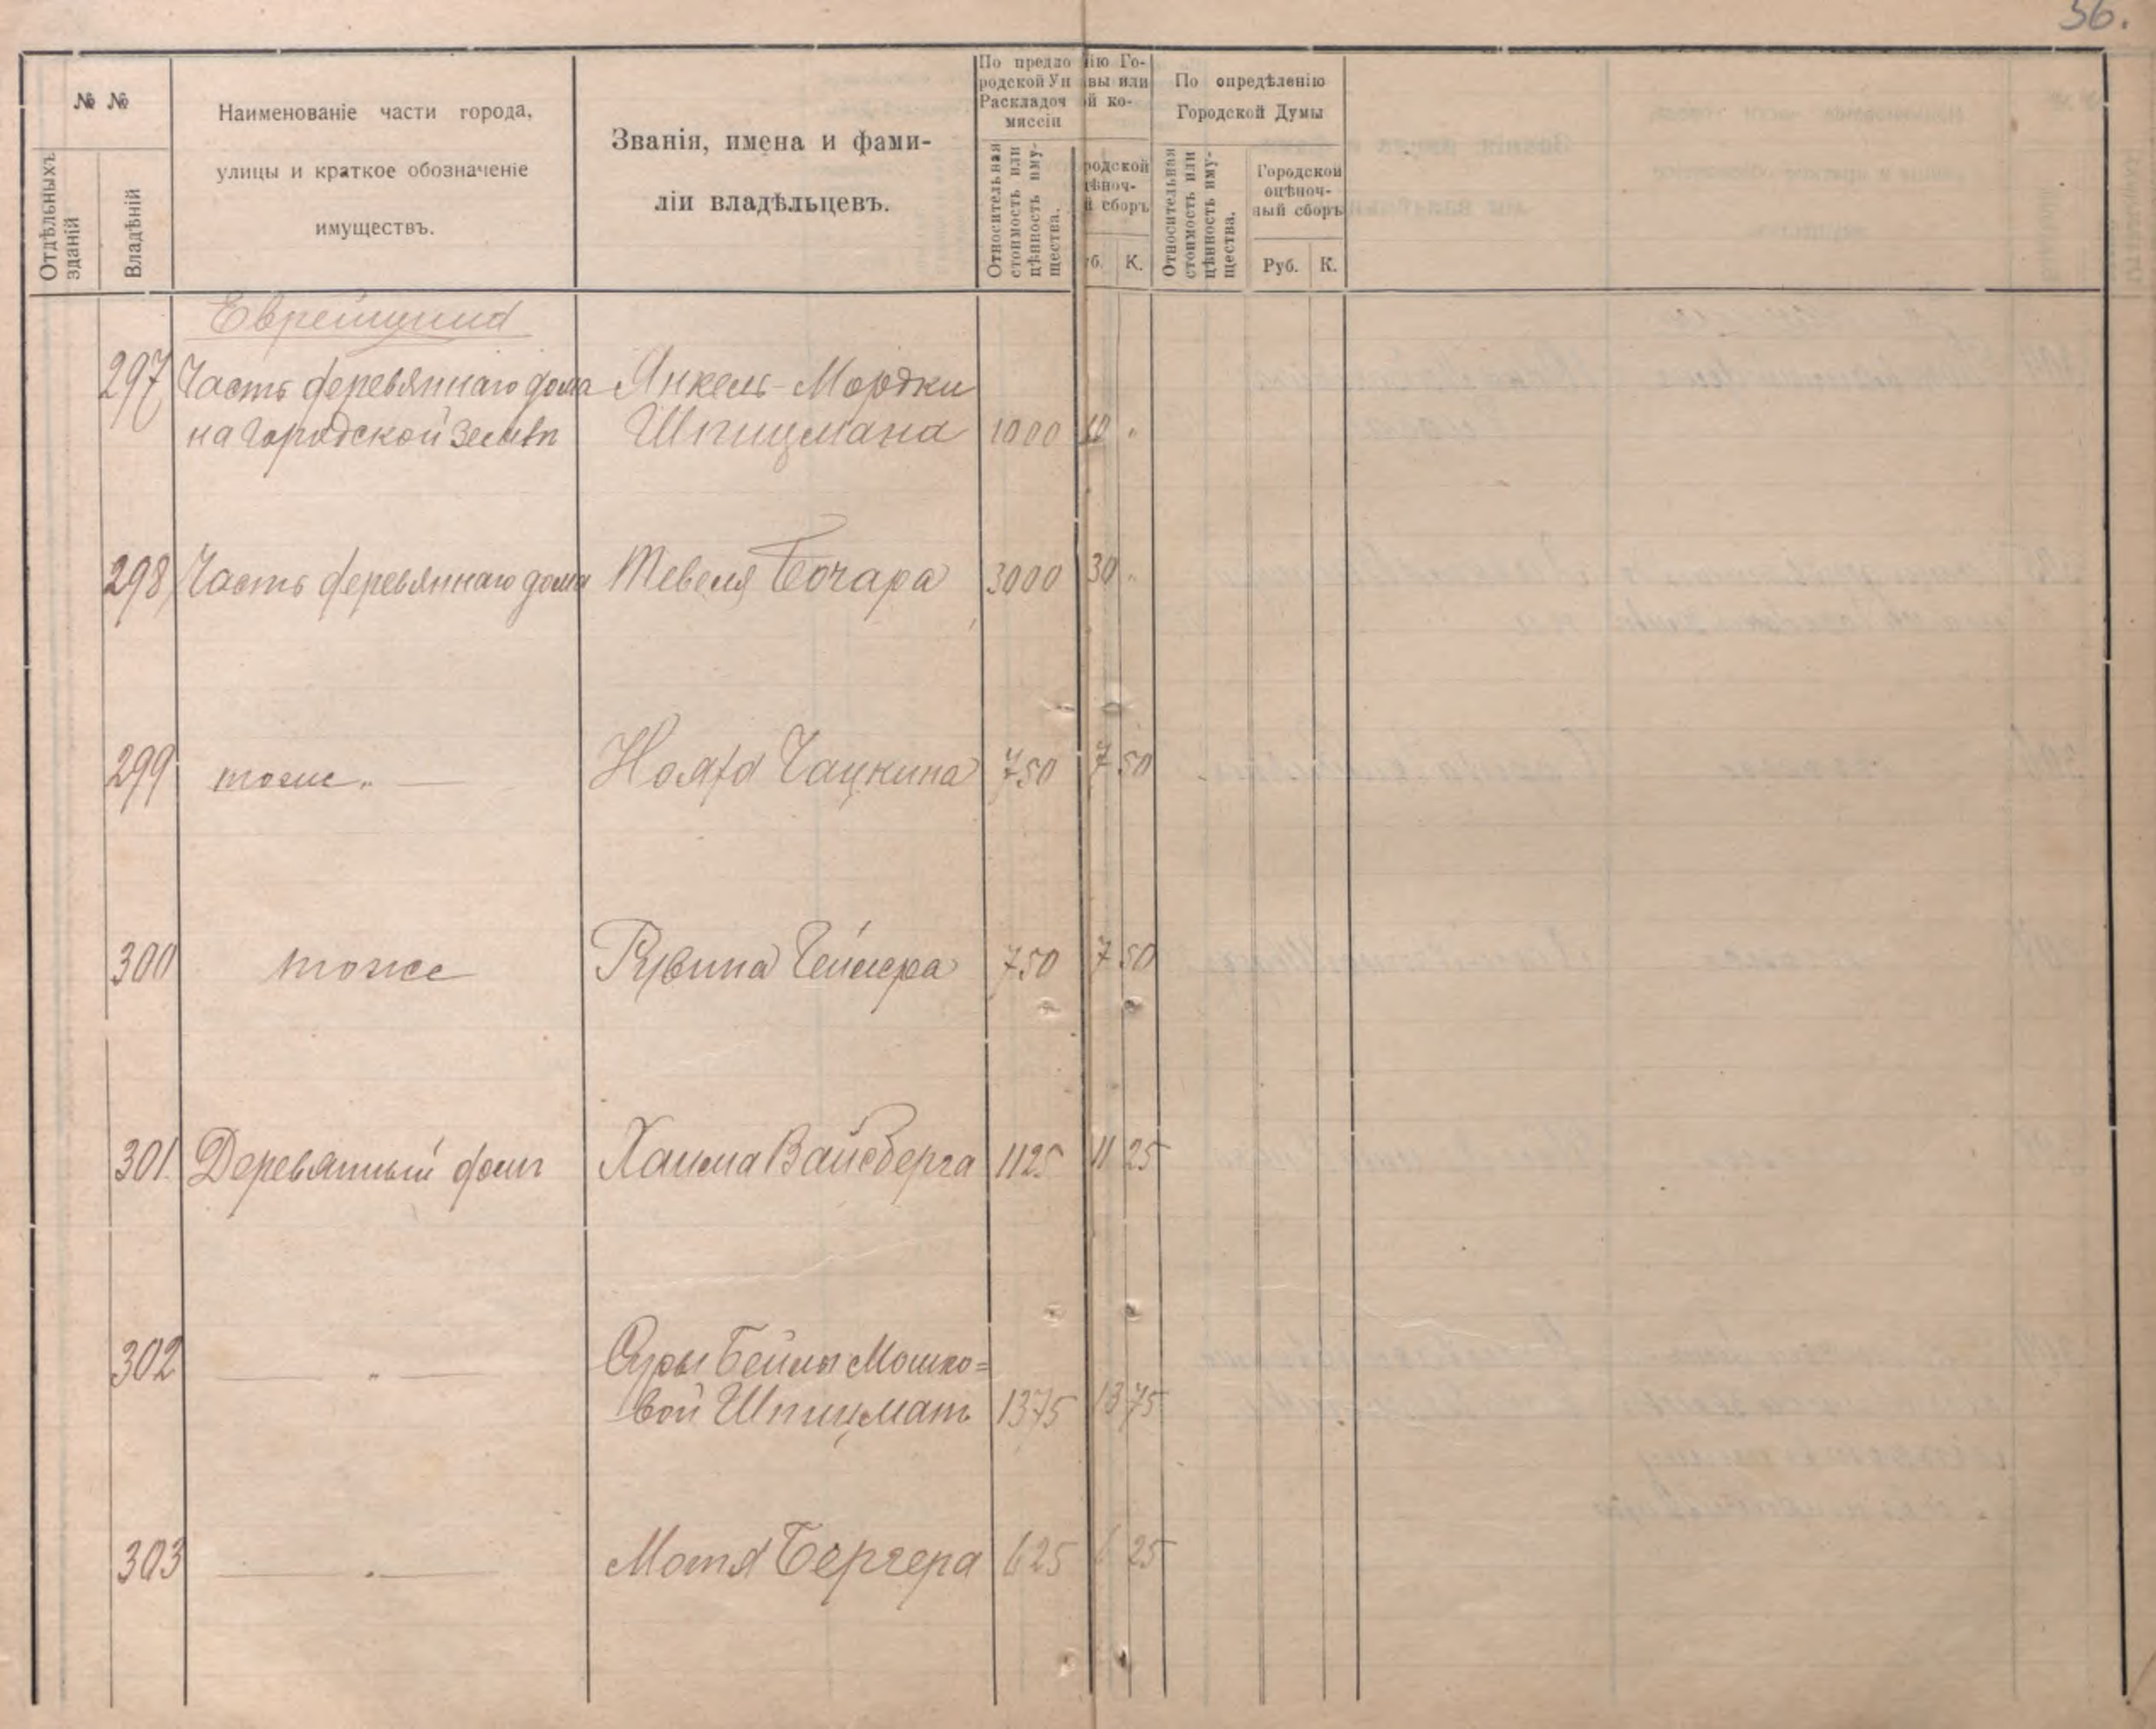 36.
№ №
Отдѣльныхъ зданій
Владѣній
Наименованіе части города,
улицы и краткое обозначеніе
имуществъ.
Званія, имена и фами-
ліи владѣльцевъ.
По предло нію Го-
родской Уп авы или
Раскладоч й ко-
миссіи
Относительная
стоимость или
цѣнность иму-
щества.
родской
ѣноч-
й сборъ
уб. К.
По опредѣленію
Городской Думы
Относительная
стоимость или
цѣнность иму-
щества.
Городской
оцѣноч-
ный сборъ
Руб. К.
297 Часть деревяннаго дома Янкель-Мордки
на Городской землѣ Шпицмана 1000 10 "
298 Часть деревяннаго дома Тевеля Бочара 3000 30 "
299 тоже " Чацкина 750 7 50
300 тоже Рувина 750 7 50
301 Деревянный домъ Хаима Вайсберга 1125 11 25
302 " Суры Бейлы Мошко=
вой Шпицманъ 1375 13 75
303 " Мотя Бергера 625 6 25